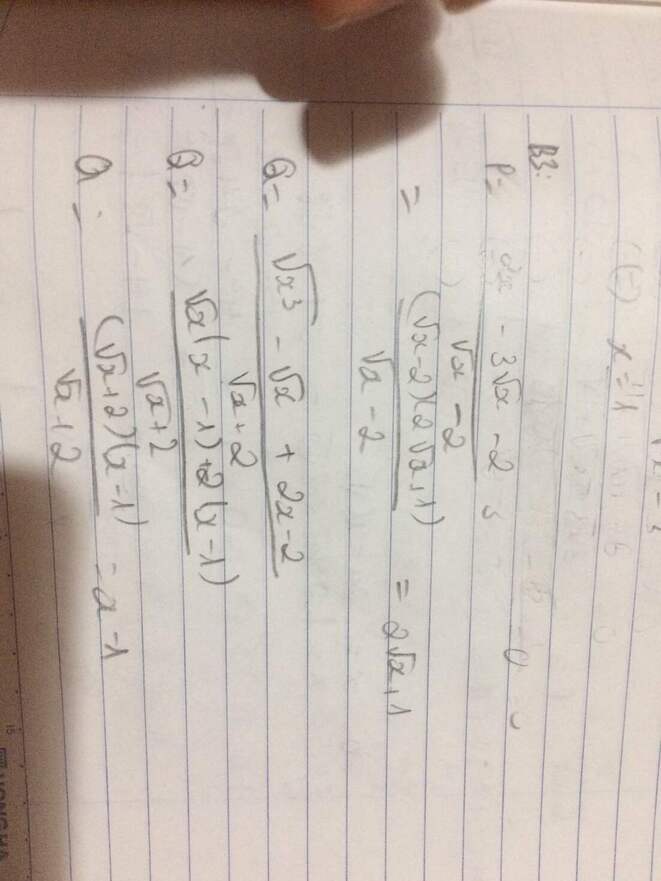 (-) x = 1
B3:
P = 2x - 3√x - 2
√x - 2
= (√x-2)(2√x+1) = 2√x+1
√x - 2
Q = √x³ - √x + 2x-2
√x + 2
Q = √x(x - 1)+2(x-1)
√x+2
Q = (√x+2)(x-1) = x-1
√x+2